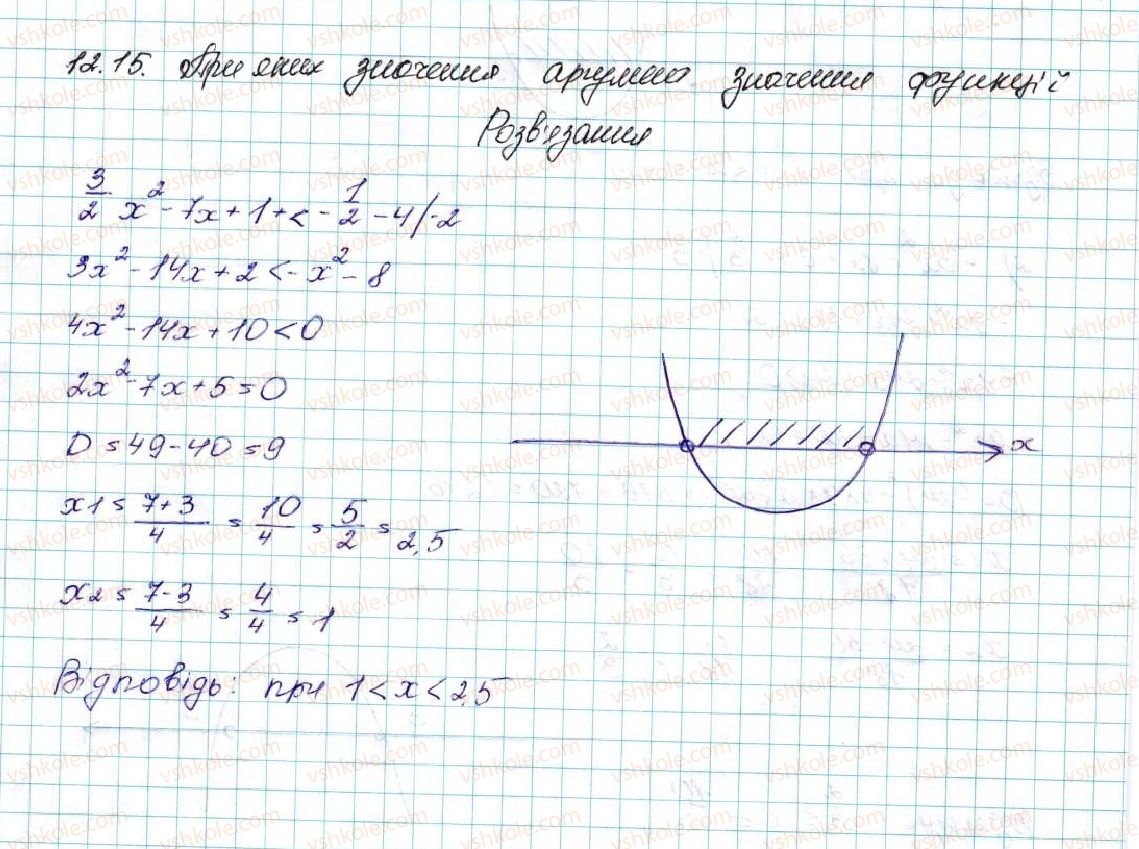 12.15. При яких значення аргумено значення функцій
Розв'язання
3/2 x² - 7x + 1 + < - 1/2 - 4 / · 2
3x² - 14x + 2 < - x² - 8
4x² - 14x + 10 < 0
2x² - 7x + 5 = 0
D = 49 - 40 = 9
x1 = 7+3/4 = 10/4 = 5/2 = 2,5
x
x2 = 7-3/4 = 4/4 = 1
Відповідь: при 1 < x < 2,5
vshkole.com